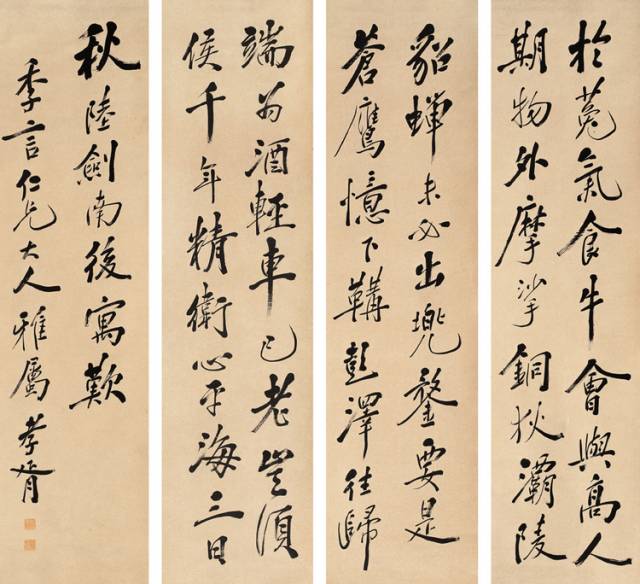 於菟氣食牛會與高人
期物外摩挲銅狄灞陵
貂蟬未必出兜鍪要是
蒼鷹憶下鞲彭澤往歸
端為酒輕車已老豈須
侯千年精衛心平海三日
秋陸劍南後寓歎
季言仁兄大人雅屬孝胥